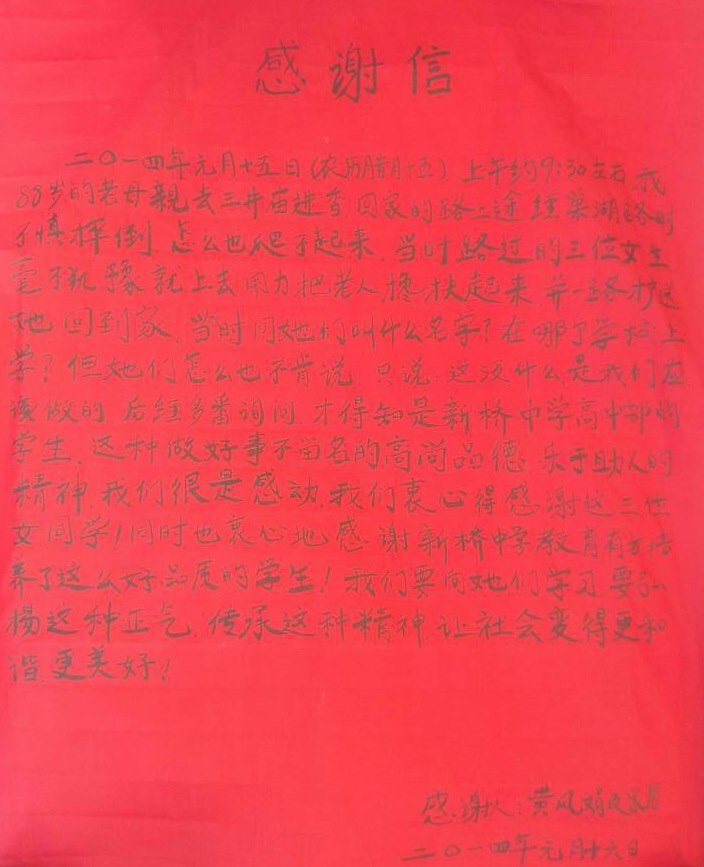 感谢信
二〇一四年元月十五日(农历腊月十五)上午约9:30左右我
88岁的老母亲去三井庙进香回家的路上途经巢湖路时
不慎摔倒 怎么也爬不起来.当时路过的三位女生
毫不犹豫就上去用力把老人搀扶起来 并一路护送
她回到家.当时问她们叫什么名字?在哪个学校上
学?但她们怎么也不肯说 只说:这没什么是我们应
该做的 后经多番询问 才得知是新桥中学高中部的
学生.这种做好事不留名的高尚品德 乐于助人的
精神.我们很是感动.我们衷心得感谢这三位
女同学!同时也衷心地感谢新桥中学教育有方培
养了这么好品质的学生!我们要向她们学习要弘
杨这种正气.传承这种精神 让社会变得更和
谐.更美好!
感谢人:黄凤娟及家属
二〇一四年元月十六日